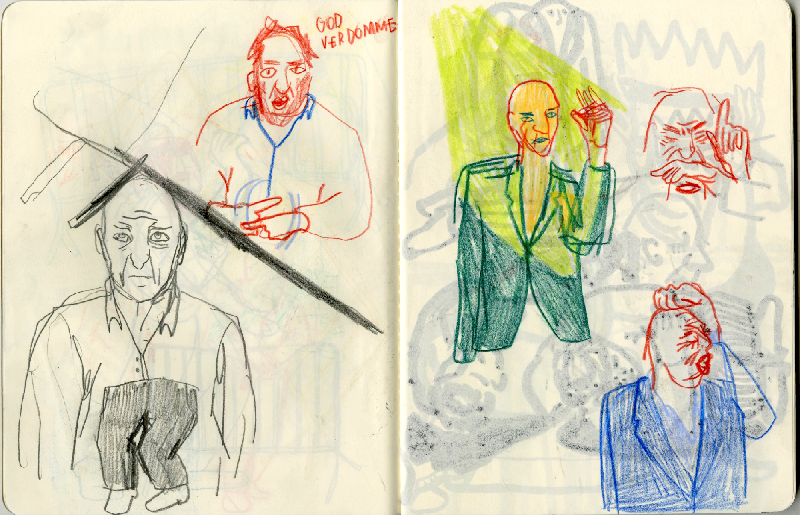 GOD
VERDOMME